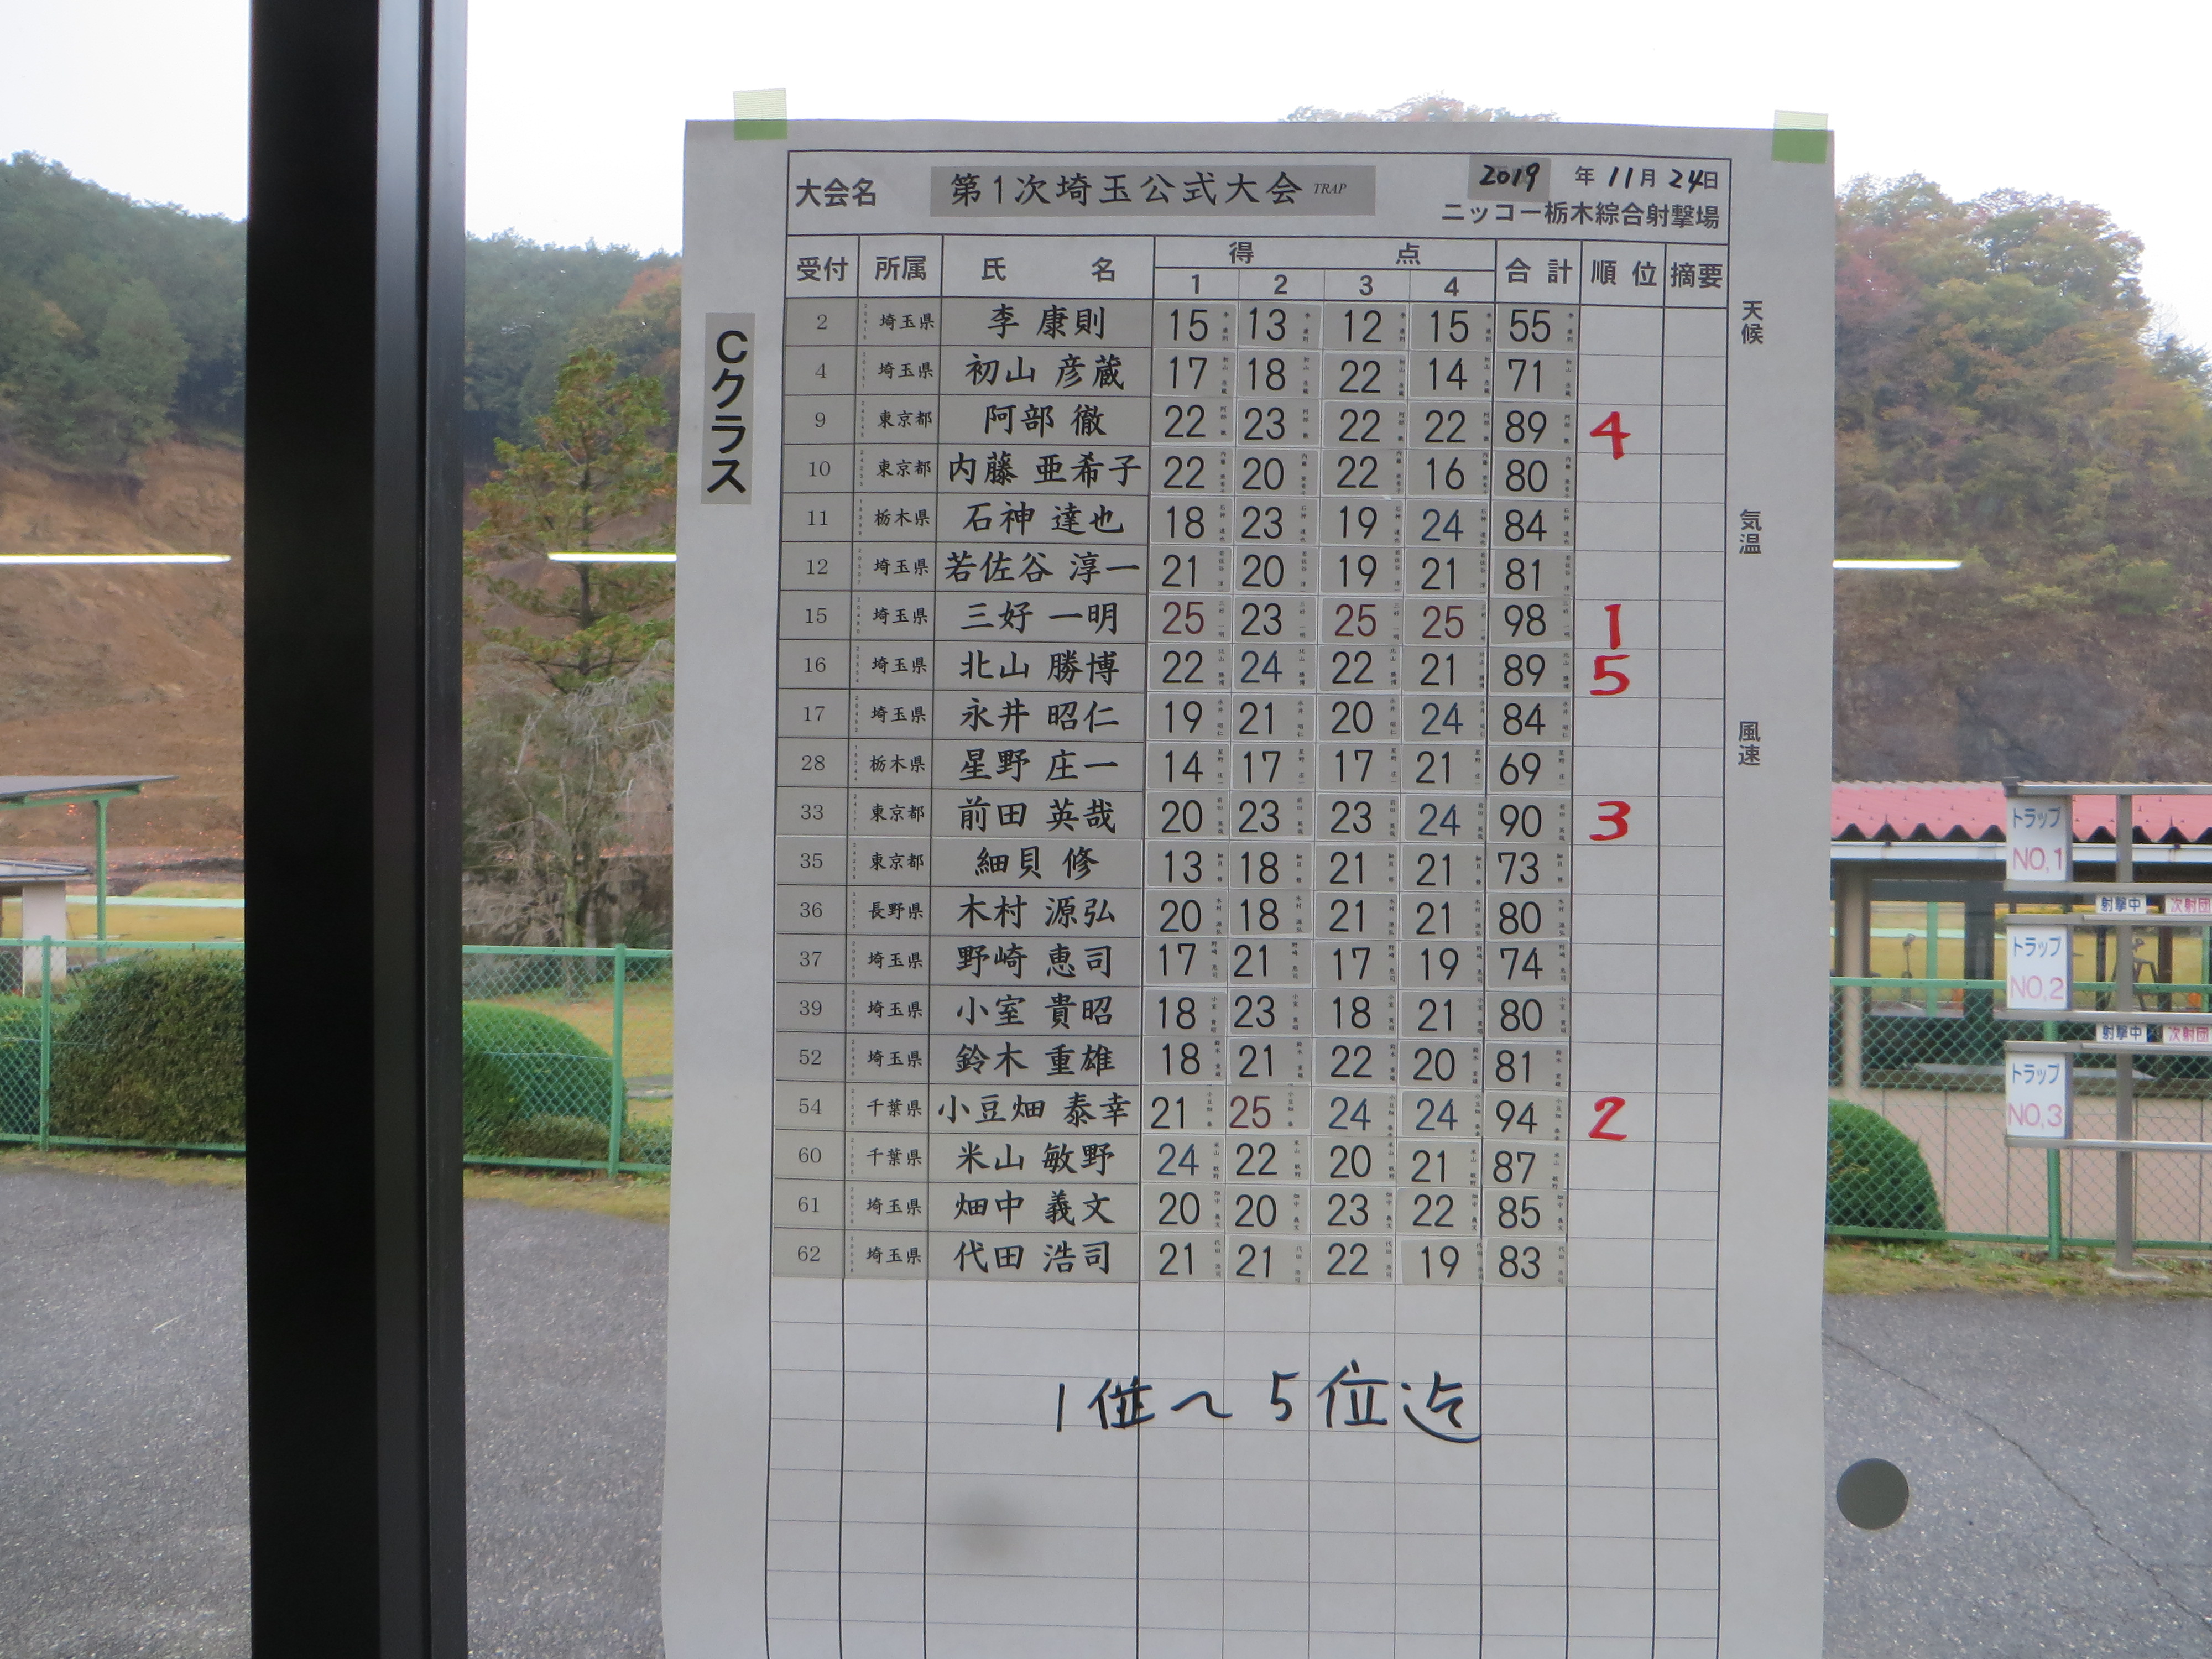 大会名 第1次埼玉公式大会 TRAP 2019 年 11月 24日
ニッコー栃木綜合射撃場
Cクラス
受付 所属 氏 名 得 点 合 計 順 位 摘要
1 2 3 4
2 埼玉県 李 康則 15 13 12 15 55
4 埼玉県 初山 彦蔵 17 18 22 14 71
9 東京都 阿部 徹 22 23 22 22 89 4
10 東京都 内藤 亜希子 22 20 22 16 80
11 栃木県 石神 達也 18 23 19 24 84
12 埼玉県 若佐谷 淳一 21 20 19 21 81
15 埼玉県 三好 一明 25 23 25 25 98 1
16 埼玉県 北山 勝博 22 24 22 21 89 5
17 埼玉県 永井 昭仁 19 21 20 24 84
28 栃木県 星野 庄一 14 17 17 21 69
33 東京都 前田 英哉 20 23 23 24 90 3
35 東京都 細貝 修 13 18 21 21 73
36 長野県 木村 源弘 20 18 21 21 80
37 埼玉県 野崎 恵司 17 21 17 19 74
39 埼玉県 小室 貴昭 18 23 18 21 80
52 埼玉県 鈴木 重雄 18 21 22 20 81
54 千葉県 小豆畑 泰幸 21 25 24 24 94 2
60 千葉県 米山 敏野 24 22 20 21 87
61 埼玉県 畑中 義文 20 20 23 22 85
62 埼玉県 代田 浩司 21 21 22 19 83
1位〜5位迄
天候
気温
風速
トラップ
NO,1
射撃中 次射団
トラップ
NO,2
射撃中 次射団
トラップ
NO,3